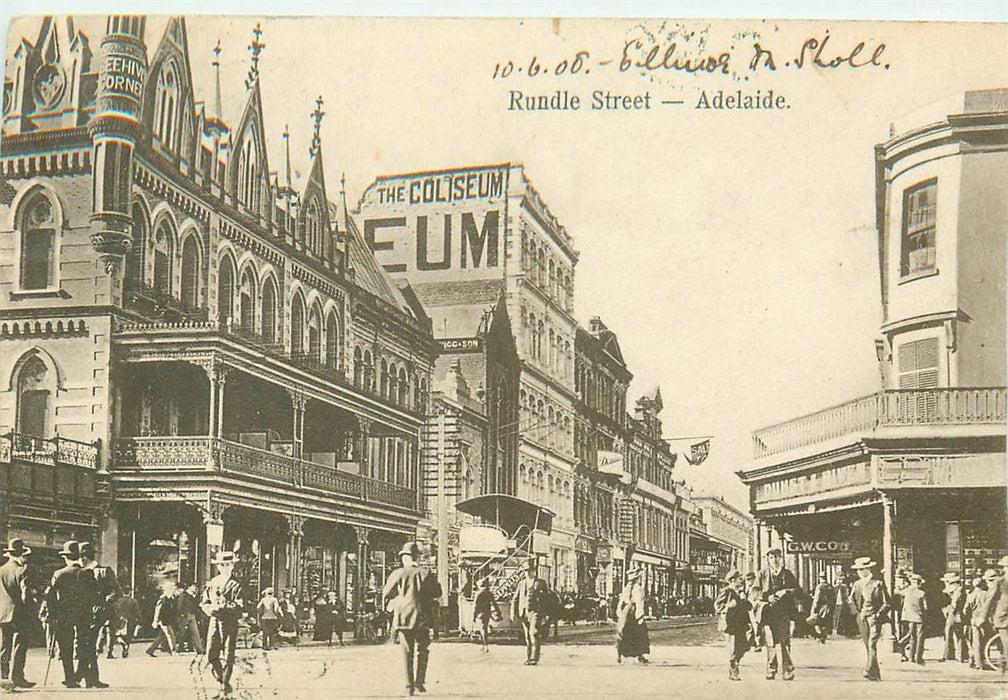 10.6.08. -
Rundle Street — Adelaide.
BEEHIVE
CORNER
THE COLISEUM
EUM
IGG & SON
G.W. COX